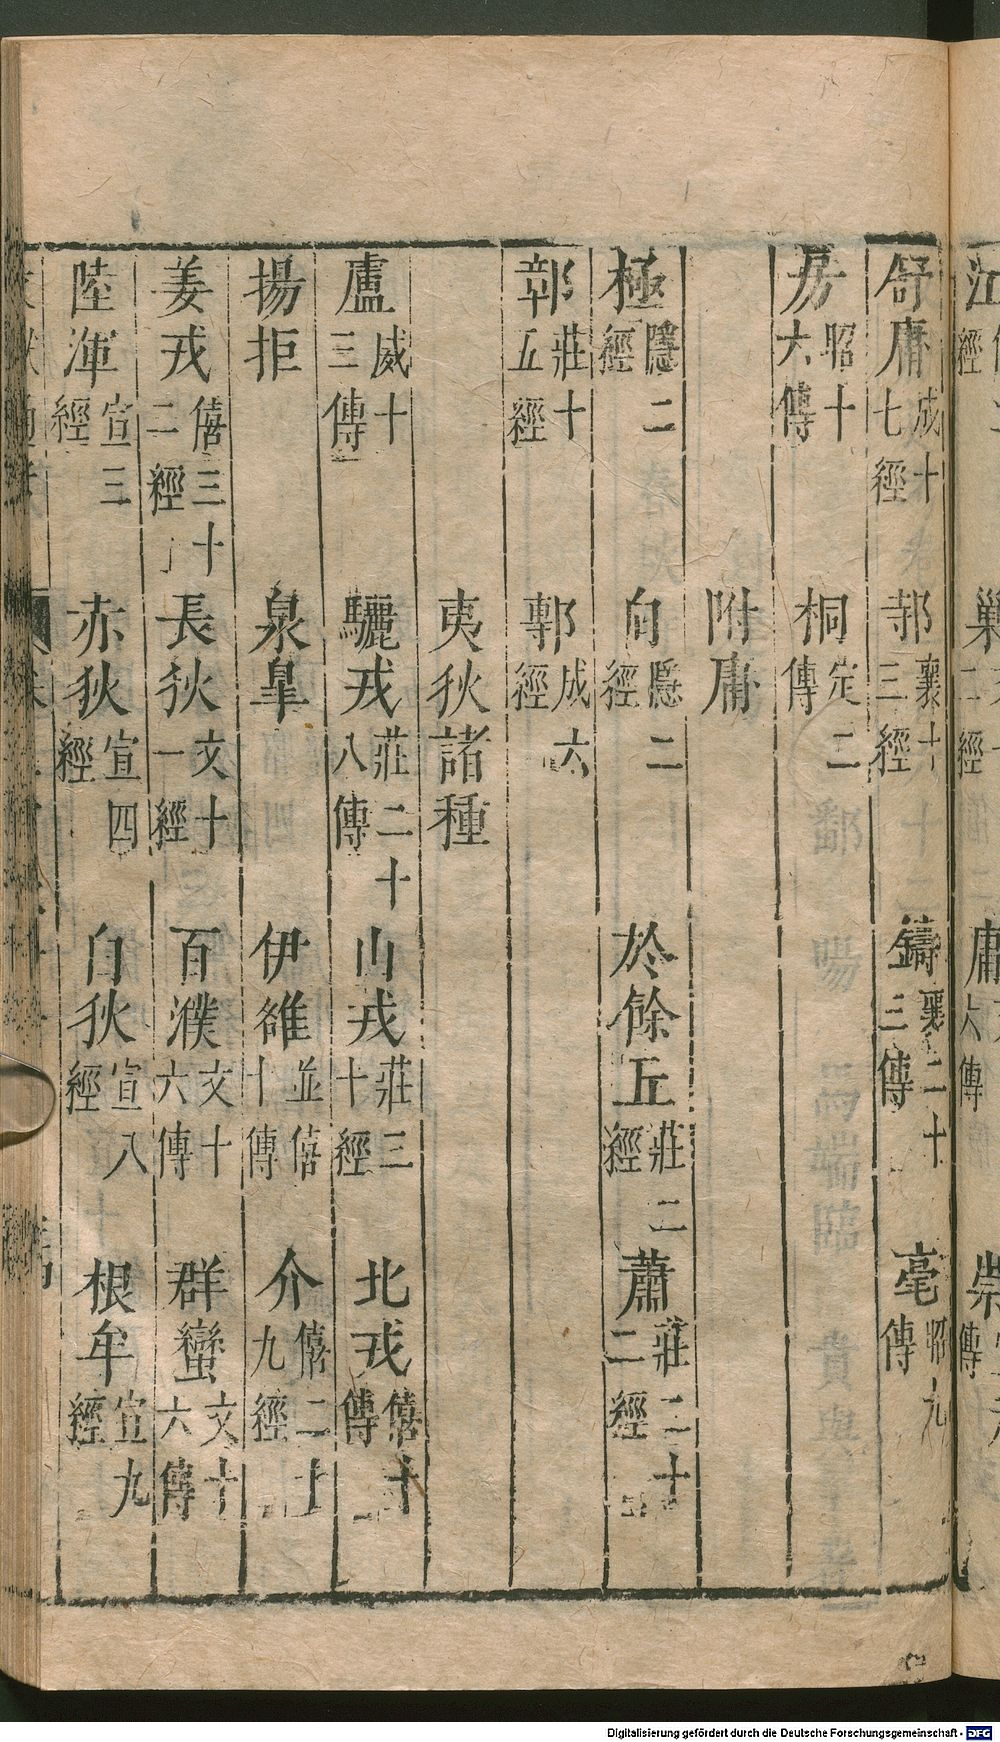 舒庸成十七經 邿襄十三經 鑄襄二十三傳 亳昭九傳
房昭十六傳 桐定二傳
附庸
極隱二經 向隱二經 於餘丘莊二經 蕭莊二十二經
鄣莊十五經 鄟成六經
夷狄諸種
盧威十三傳 驪戎莊二十八傳 山戎莊三十經 北戎僖十傳
揚拒 泉皐 伊雒並僖十傳 介僖二十九經
姜戎僖三十二經 長狄文十一經 百濮文十六傳 群蠻文十六傳
陸渾宣三經 赤狄宣四經 白狄宣八經 根牟宣九經
Digitalisierung gefördert durch die Deutsche Forschungsgemeinschaft - DFG